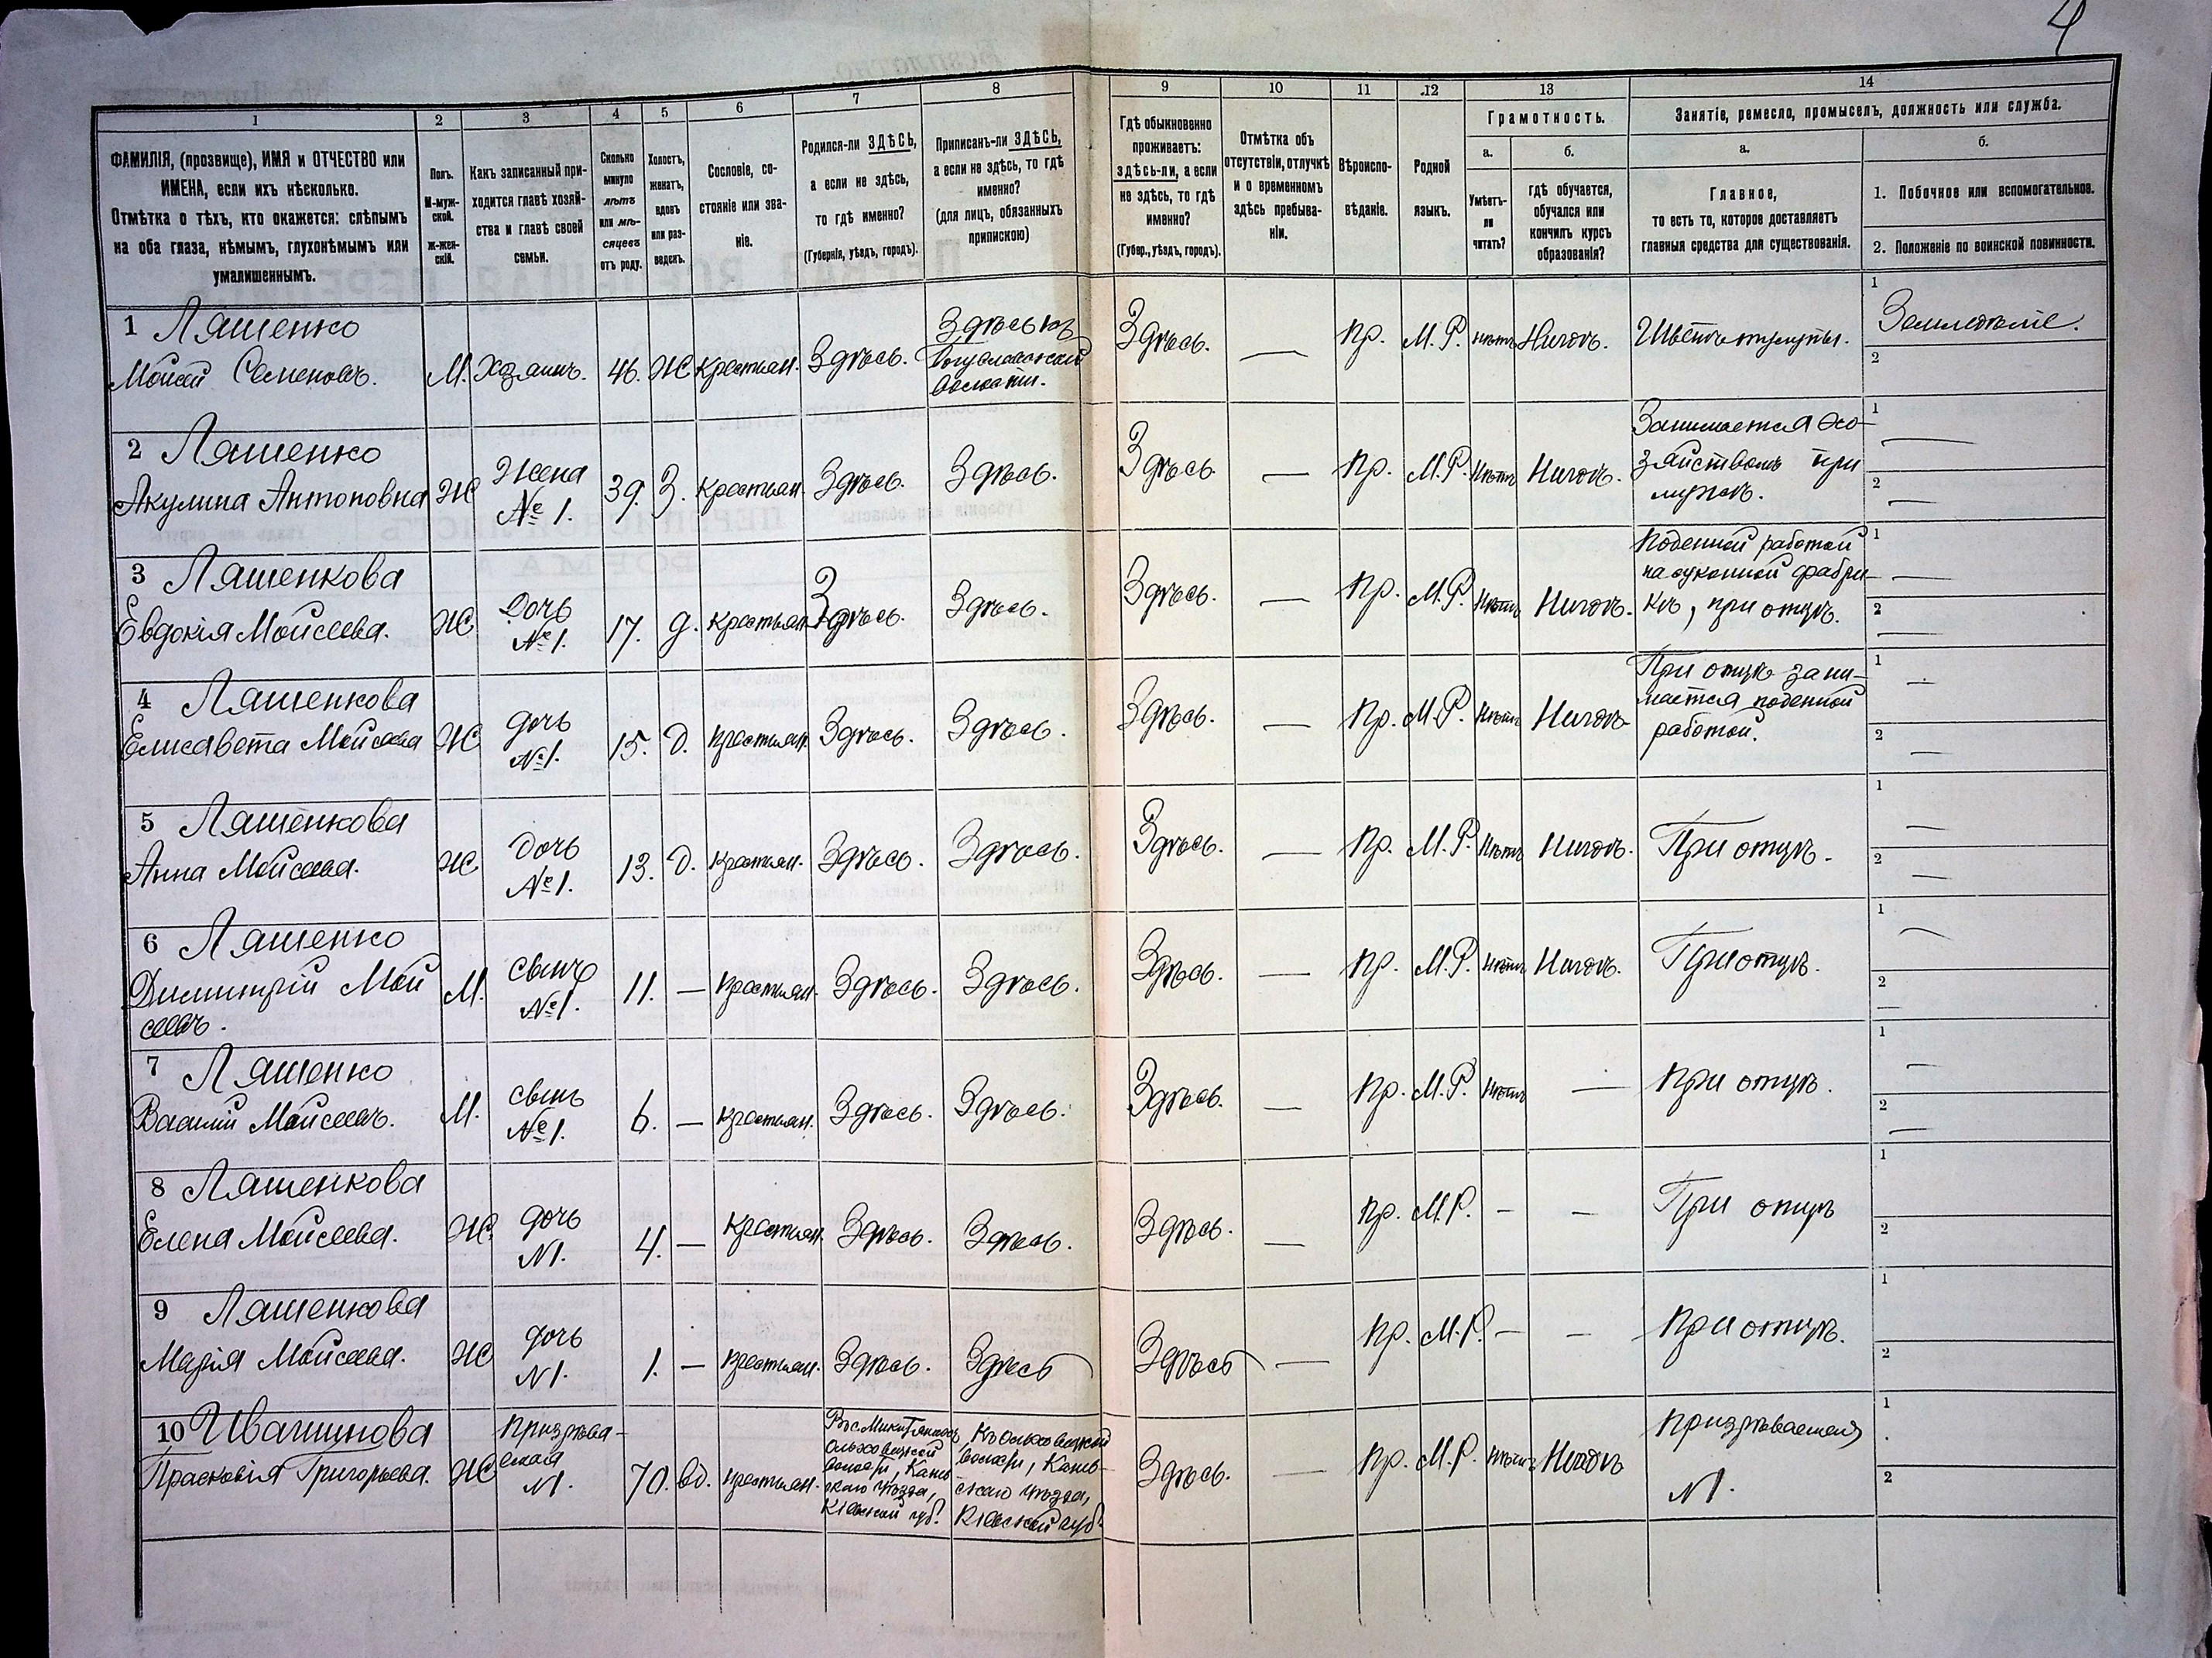 4
1
ФАМИЛІЯ, (прозвище), ИМЯ и ОТЧЕСТВО или
ИМЕНА, если ихъ нѣсколько.
Отмѣтка о тѣхъ, кто окажется: слѣпымъ
на оба глаза, нѣмымъ, глухонѣмымъ или
умалишеннымъ.
2
Полъ.
М-муж-
ской.
ж-жен-
скій.
3
Какъ записанный при-
ходится главѣ хозяй-
ства и главѣ своей
семьи.
4
Сколько
минуло
лѣтъ
или мѣ-
сяцевъ
отъ роду.
5
Холостъ,
женатъ,
вдовъ
или раз-
веденъ.
6
Сословіе, со-
стояніе или зва-
ніе.
7
Родился-ли ЗДѢСЬ,
а если не здѣсь,
то гдѣ именно?
(Губернія, уѣздъ, городъ).
8
Приписанъ-ли ЗДѢСЬ,
а если не здѣсь, то гдѣ
именно?
(для лицъ, обязанныхъ
припискою)
9
Гдѣ обыкновенно
проживаетъ:
здѣсь-ли, а если
не здѣсь, то гдѣ
именно?
(Губер., уѣздъ, городъ).
10
Отмѣтка объ
отсутствіи, отлучкѣ
и о временномъ
здѣсь пребыва-
ніи.
11
Вѣроиспо-
вѣданіе.
12
Родной
языкъ.
13
Грамотность.
а.
Умѣетъ-
ли
читать?
б.
гдѣ обучается,
обучался или
кончилъ курсъ
образованія?
14
Занятіе, ремесло, промыселъ, должность или служба.
а.
Главное,
то есть то, которое доставляетъ
главныя средства для существованія.
б.
1. Побочное или вспомогательное.
2. Положеніе по воинской повинности.
1 Ляшенко
Мойсей Семеновъ.
М. Хозяинъ. 46. Ж Крестьян. Здѣсь.
Здѣсь къ
Богуславской
волости.
Здѣсь. — Пр. М.Р. Нѣтъ Нигдѣ.
1 Земледѣліе.
2
2 Ляшенко
Акулина Антоновна
Ж
Жена
№ 1.
39. З. Крестьян. Здѣсь. Здѣсь.
Здѣсь — Пр. М.Р. Нѣтъ Нигдѣ.
Занимается хо-
зяйствомъ при
мужѣ.
1 —
2 —
3 Ляшенкова
Евдокія Мойсеева.
Ж
Дочь
№ 1.
17. д. Крестьян. Здѣсь. Здѣсь.
Здѣсь. — Пр. М.Р. Нѣтъ Нигдѣ.
Поденной работой
на суконной фабри-
кѣ, при отцѣ.
1 —
2 —
4 Ляшенкова
Елисавета Мойсеева
Ж
дочь
№ 1.
15. д. Крестьян. Здѣсь. Здѣсь.
Здѣсь. — Пр. М.Р. Нѣтъ Нигдѣ
При отцѣ зани-
мается поденной
работой.
1 —
2 —
5 Ляшенкова
Анна Мойсеева.
Ж
Дочь
№ 1.
13. д. Крестьян. Здѣсь. Здѣсь.
Здѣсь. — Пр. М.Р. Нѣтъ Нигдѣ. При отцѣ.
1 —
2 —
6 Ляшенко
Димитрій Мой
сеевъ.
М.
сынъ
№ 1.
11. — Крестьян. Здѣсь. Здѣсь.
Здѣсь. — Пр. М.Р. Нѣтъ Нигдѣ. При отцѣ.
1 —
2 —
7 Ляшенко
Василій Мойсеевъ.
М.
сынъ
№ 1.
6. — Крестьян. Здѣсь. Здѣсь.
Здѣсь. — Пр. М.Р. Нѣтъ — При отцѣ.
1 —
2 —
8 Ляшенкова
Елена Мойсеева.
Ж.
дочь
N 1.
4. — Крестьян. Здѣсь. Здѣсь.
Здѣсь. — Пр. М.Р. - - При отцѣ
1
2
9 Ляшенкова
Марія Мойсеева.
Ж
дочь
N 1.
1. — Крестьян. Здѣсь. Здѣсь
Здѣсь — Пр. М.Р. — - При отцѣ.
1
2
10 Ивашинова
Прасковія Григорьева.
Ж
Призрѣва-
емая
N 1.
70. вд. Крестьян.
Ольховецкой
волости, Канев-
скаго уѣзда,
Кіевской губ.
Къ Ольховецкой
волости, Канев-
скаго уѣзда,
Кіевской губ.
Здѣсь. — Пр. М.Р. Нѣтъ Нигдѣ
Призрѣвается
N 1.
1
2